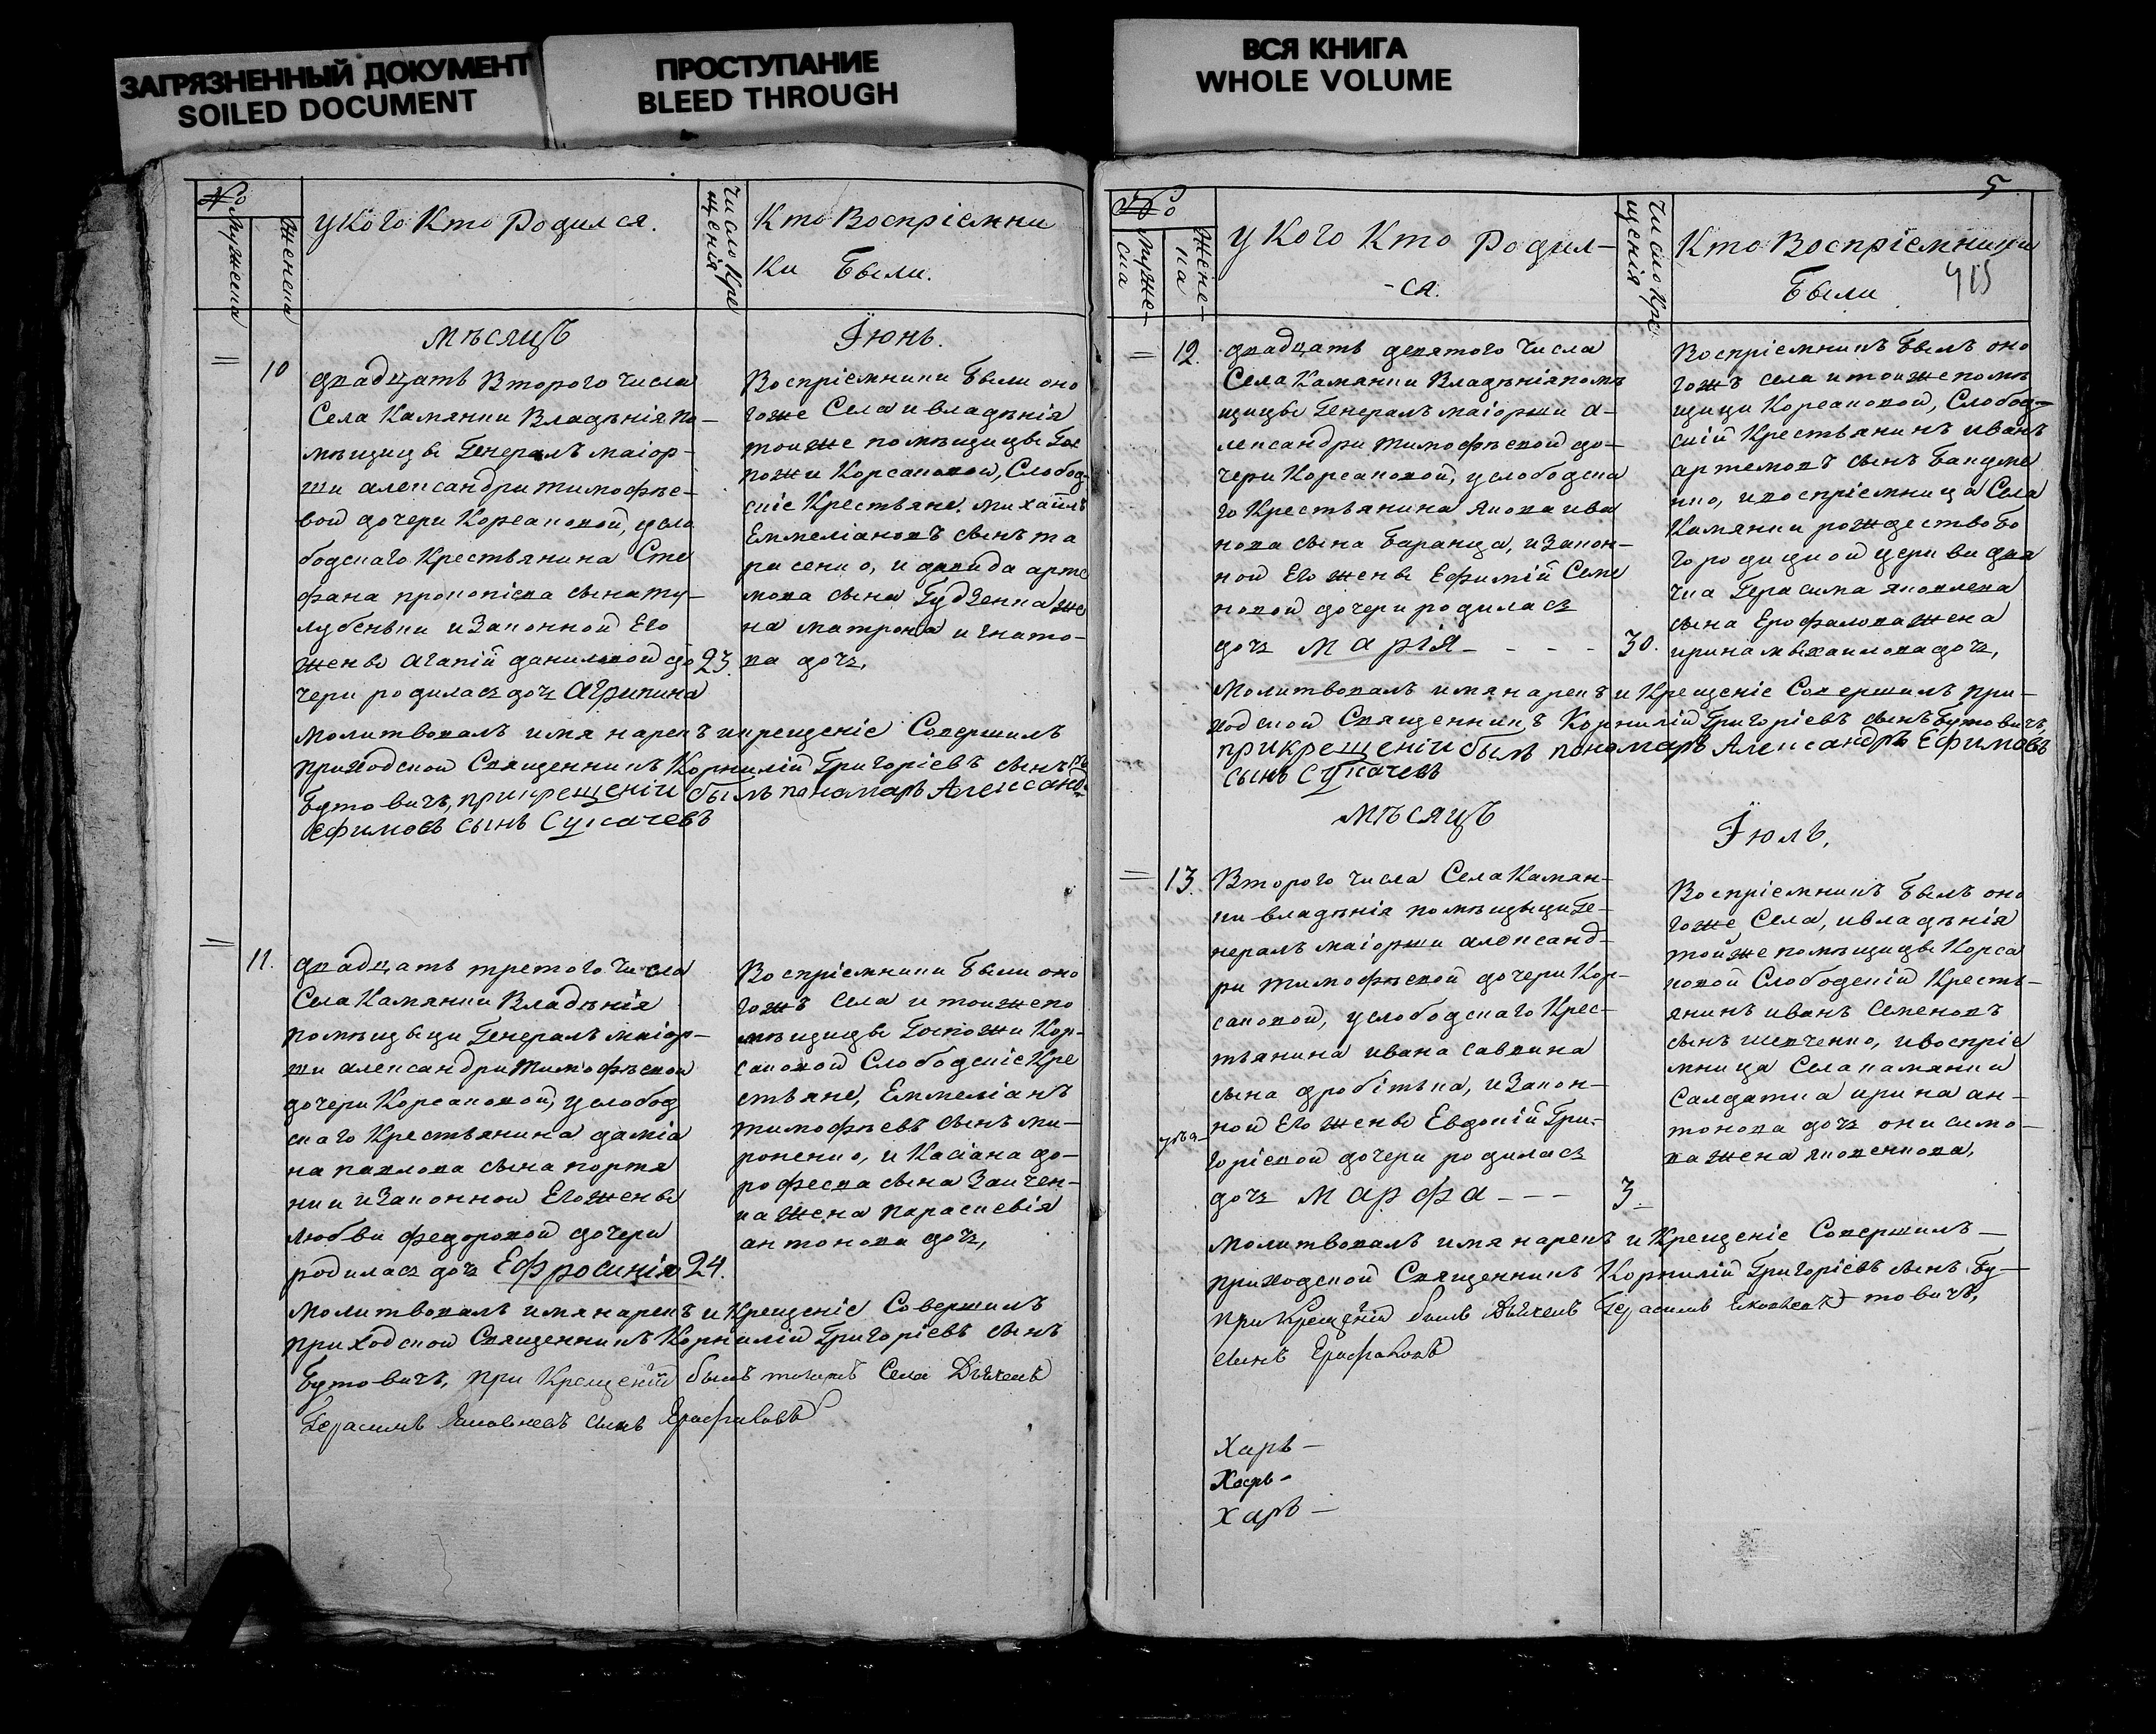 ЗАГРЯЗНЕННЫЙ ДОКУМЕНТ
SOILED DOCUMENT
ПРОСТУПАНИЕ
BLEED THROUGH
ВСЯ КНИГА
WHOLE VOLUME
№
Мужеска
Женска
У Кого Кто Родился.
Число Кре
щенія
Кто Воспріемни
ки Были.
Мѣсяцъ
Іюнь.
10
двадцать Второго Числа
Села Камянки Владѣнія по-
мѣщицы Генералъ маіор-
ши александри тимофѣе-
вой дочери Корсаковой, усло
бодскаго Крестьянина Сте
фана прокопіева сына
и Законной Его
жены агапій даниловой до
чери родиласъ дочъ Агрипина
23.
Воспріемники Были оно
гоже Села и владѣнія
тойже помѣщицы Гос
пожи Корсаковой, Слобод-
скіе Крестьяне, михаилъ
Еммеліановъ сынъ та
расенко, и давида арте
мова сына Гудзенка же
на матрона игнато-
ва дочъ,
Молитвовалъ имя нарекъ и крещеніе Совершилъ
приходской Священникъ Корнилій Григоріевъ сынъ
Бутовичъ, при крещеніи былъ пономарь Александ.
ефимовъ сынъ Сукачевъ
11.
двадцать третого Числа
Села Камянки Владѣнія
помѣщыци Генералъ маіор-
ши александри тимофѣевой
дочери Корсаковой, услобод
скаго Крестьянина даміа
на павлова сына портя
нки и Законной Его жены
любви федоровой дочери
родиласъ дочъ Ефросинія 24.
Воспріемники Были оно
гожъ Села и тойже по
мѣщицы Госпожи Кор-
саковой Слободскіе Кре
стьяне, Еммеліанъ
тимофѣевъ сынъ ми-
роненко, и Касіана до-
рофеева сына Заичен-
ка жена параскевія
антонова дочъ,
Молитвовалъ имя нарекъ и Крещеніе Совершилъ
приходской Священникъ Корнилій Григоріевъ сынъ
Бутовичъ, при Крещеніи былъ тогожъ Села Дьячекъ
Герасимъ Яковлевъ сынъ Ерофаловъ
5
№
Муже-
ска
Жене-
ка
У Кого Кто Родил-
-ся.
Число Кре
щенія
Кто Воспріемники
Были
415
12.
двадцать девятого Числа
Села Камянки Владѣнія помѣ
щицы Генералъ маіорши а-
лександри тимофѣевой до-
чери Корсаковой, услободска
го Крестьянина Якова ива
нова сына Баранца, и Закон-
ной Его жены Ефимій Семе
новой дочери родиласъ
дочъ Марія - - - - 30.
Воспріемникъ Былъ оно
гожъ села и тоиже помѣ
щици Корсаковой, Слобод-
скій Крестьянинъ иванъ
артемовъ сынъ Бандме
нко, и воспріемница Села
Камянки рождество Бо
городицкой церкви дья
чка Герасима Яковлева
сына Ерофалова жена
ирина михаилова дочъ,
Молитвовалъ имя нарекъ и Крещеніе Совершилъ при-
ходской Священникъ Корнилій Григоріевъ сынъ Бутовичъ,
при крещеніи былъ пономарь Александръ Ефимовъ
сынъ Сукачевъ
Мѣсяцъ
Іюль,
13.
Второго числа Села Камян-
ки владѣнія помѣщыци Ге-
нералъ маіорши александ-
ри тимофѣевой дочери Кор-
саковой, услободскаго Крес-
тьянина ивана саввина
сына дробітька, и Закон-
ной Его жены Евдокій Гри-
горіевой дочери родиласъ
дочъ Марфа - - - 3.
Воспріемникъ Былъ оно
гоже Села, и владѣнія
тойже помѣщицы Корса
ковой Слободскій Кресть-
янинъ иванъ Семеновъ
сынъ шевченко, и воспріе
мница Села камянки
Салдатка ирина ан-
тонова дочъ онисимо-
ва жена яковенкова,
Молитвовалъ имя нарекъ и Крещеніе Совершилъ
приходской Священникъ Корнилій Григоріевъ сынъ Бу-
товичъ,
при Крещеніи былъ Дьячекъ Герасимъ Яковлевъ
сынъ Ерофаловъ
Харь -
Харь -
Харь -